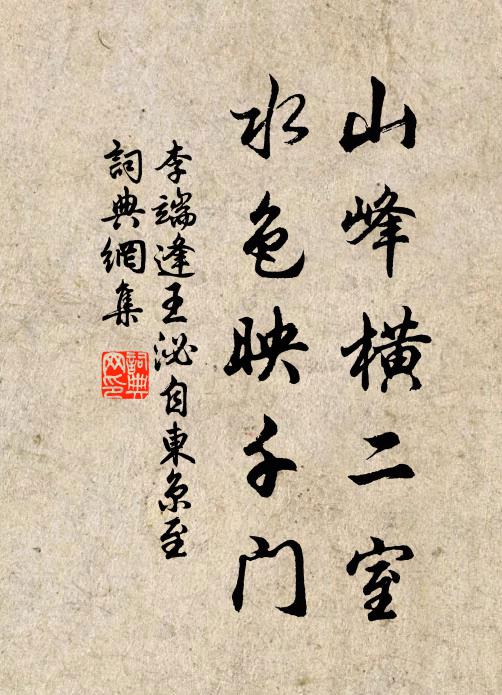 山峰橫二室
水色映千门
李端逢王泌自東京至
詞典網集
詞典网印